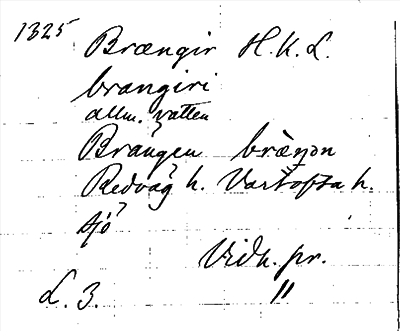 1325 Brængir H.K.L.
brangiri
allm. vatten
Brängen brä̀ŋən
Redväg h. Vartofta h.
sjö
Vidh. pr.
L. 3. "